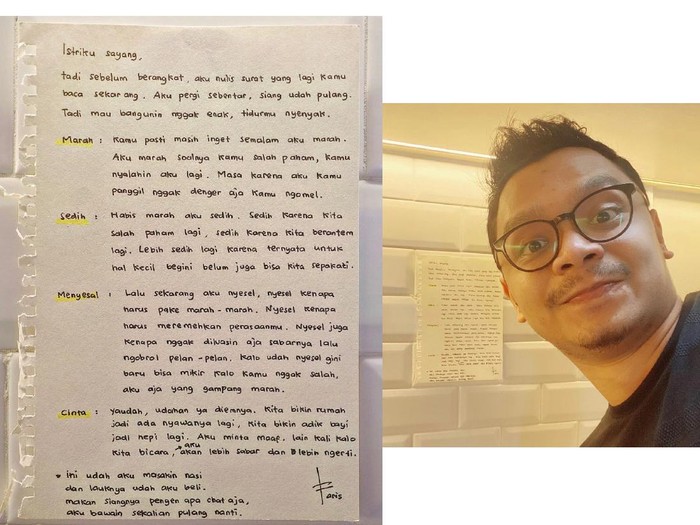 Istriku sayang,
tadi sebelum berangkat, aku nulis surat yang lagi kamu
baca sekarang. Aku pergi sebentar, siang udah pulang.
Tadi mau bangunin nggak enak, tidurmu nyenyak.
Marah : Kamu pasti masih inget semalam aku marah.
Aku marah soalnya kamu salah paham, kamu
nyalahin aku lagi. Masa karena aku kamu
panggil nggak denger aja kamu ngomel.
Sedih : Habis marah aku sedih. Sedih karena kita
salah paham lagi, sedih karena kita berantem
lagi. Lebih sedih lagi karena ternyata untuk
hal kecil begini belum juga bisa kita sepakati.
Menyesal : Lalu sekarang aku nyesel, nyesel kenapa
harus pake marah-marah. Nyesel kenapa
harus meremehkan perasaanmu. Nyesel juga
kenapa nggak dikuasin aja sabarnya lalu
ngobrol pelan-pelan. Kalo udah nyesel gini
baru bisa mikir kalo kamu nggak salah,
aku aja yang gampang marah.
Cinta : Yaudah, udahan ya diemnya. Kita bikin rumah
jadi ada nyawanya lagi, kita bikin adik bayi
jadi hepi lagi. Aku minta maaf. lain kali kalo
kita bicara, aku akan lebih sabar dan lebih ngerti.
* ini udah aku masakin nasi
dan lauknya udah aku beli.
makan siangnya pengen apa chat aja,
aku bawain sekalian pulang nanti.
Faris